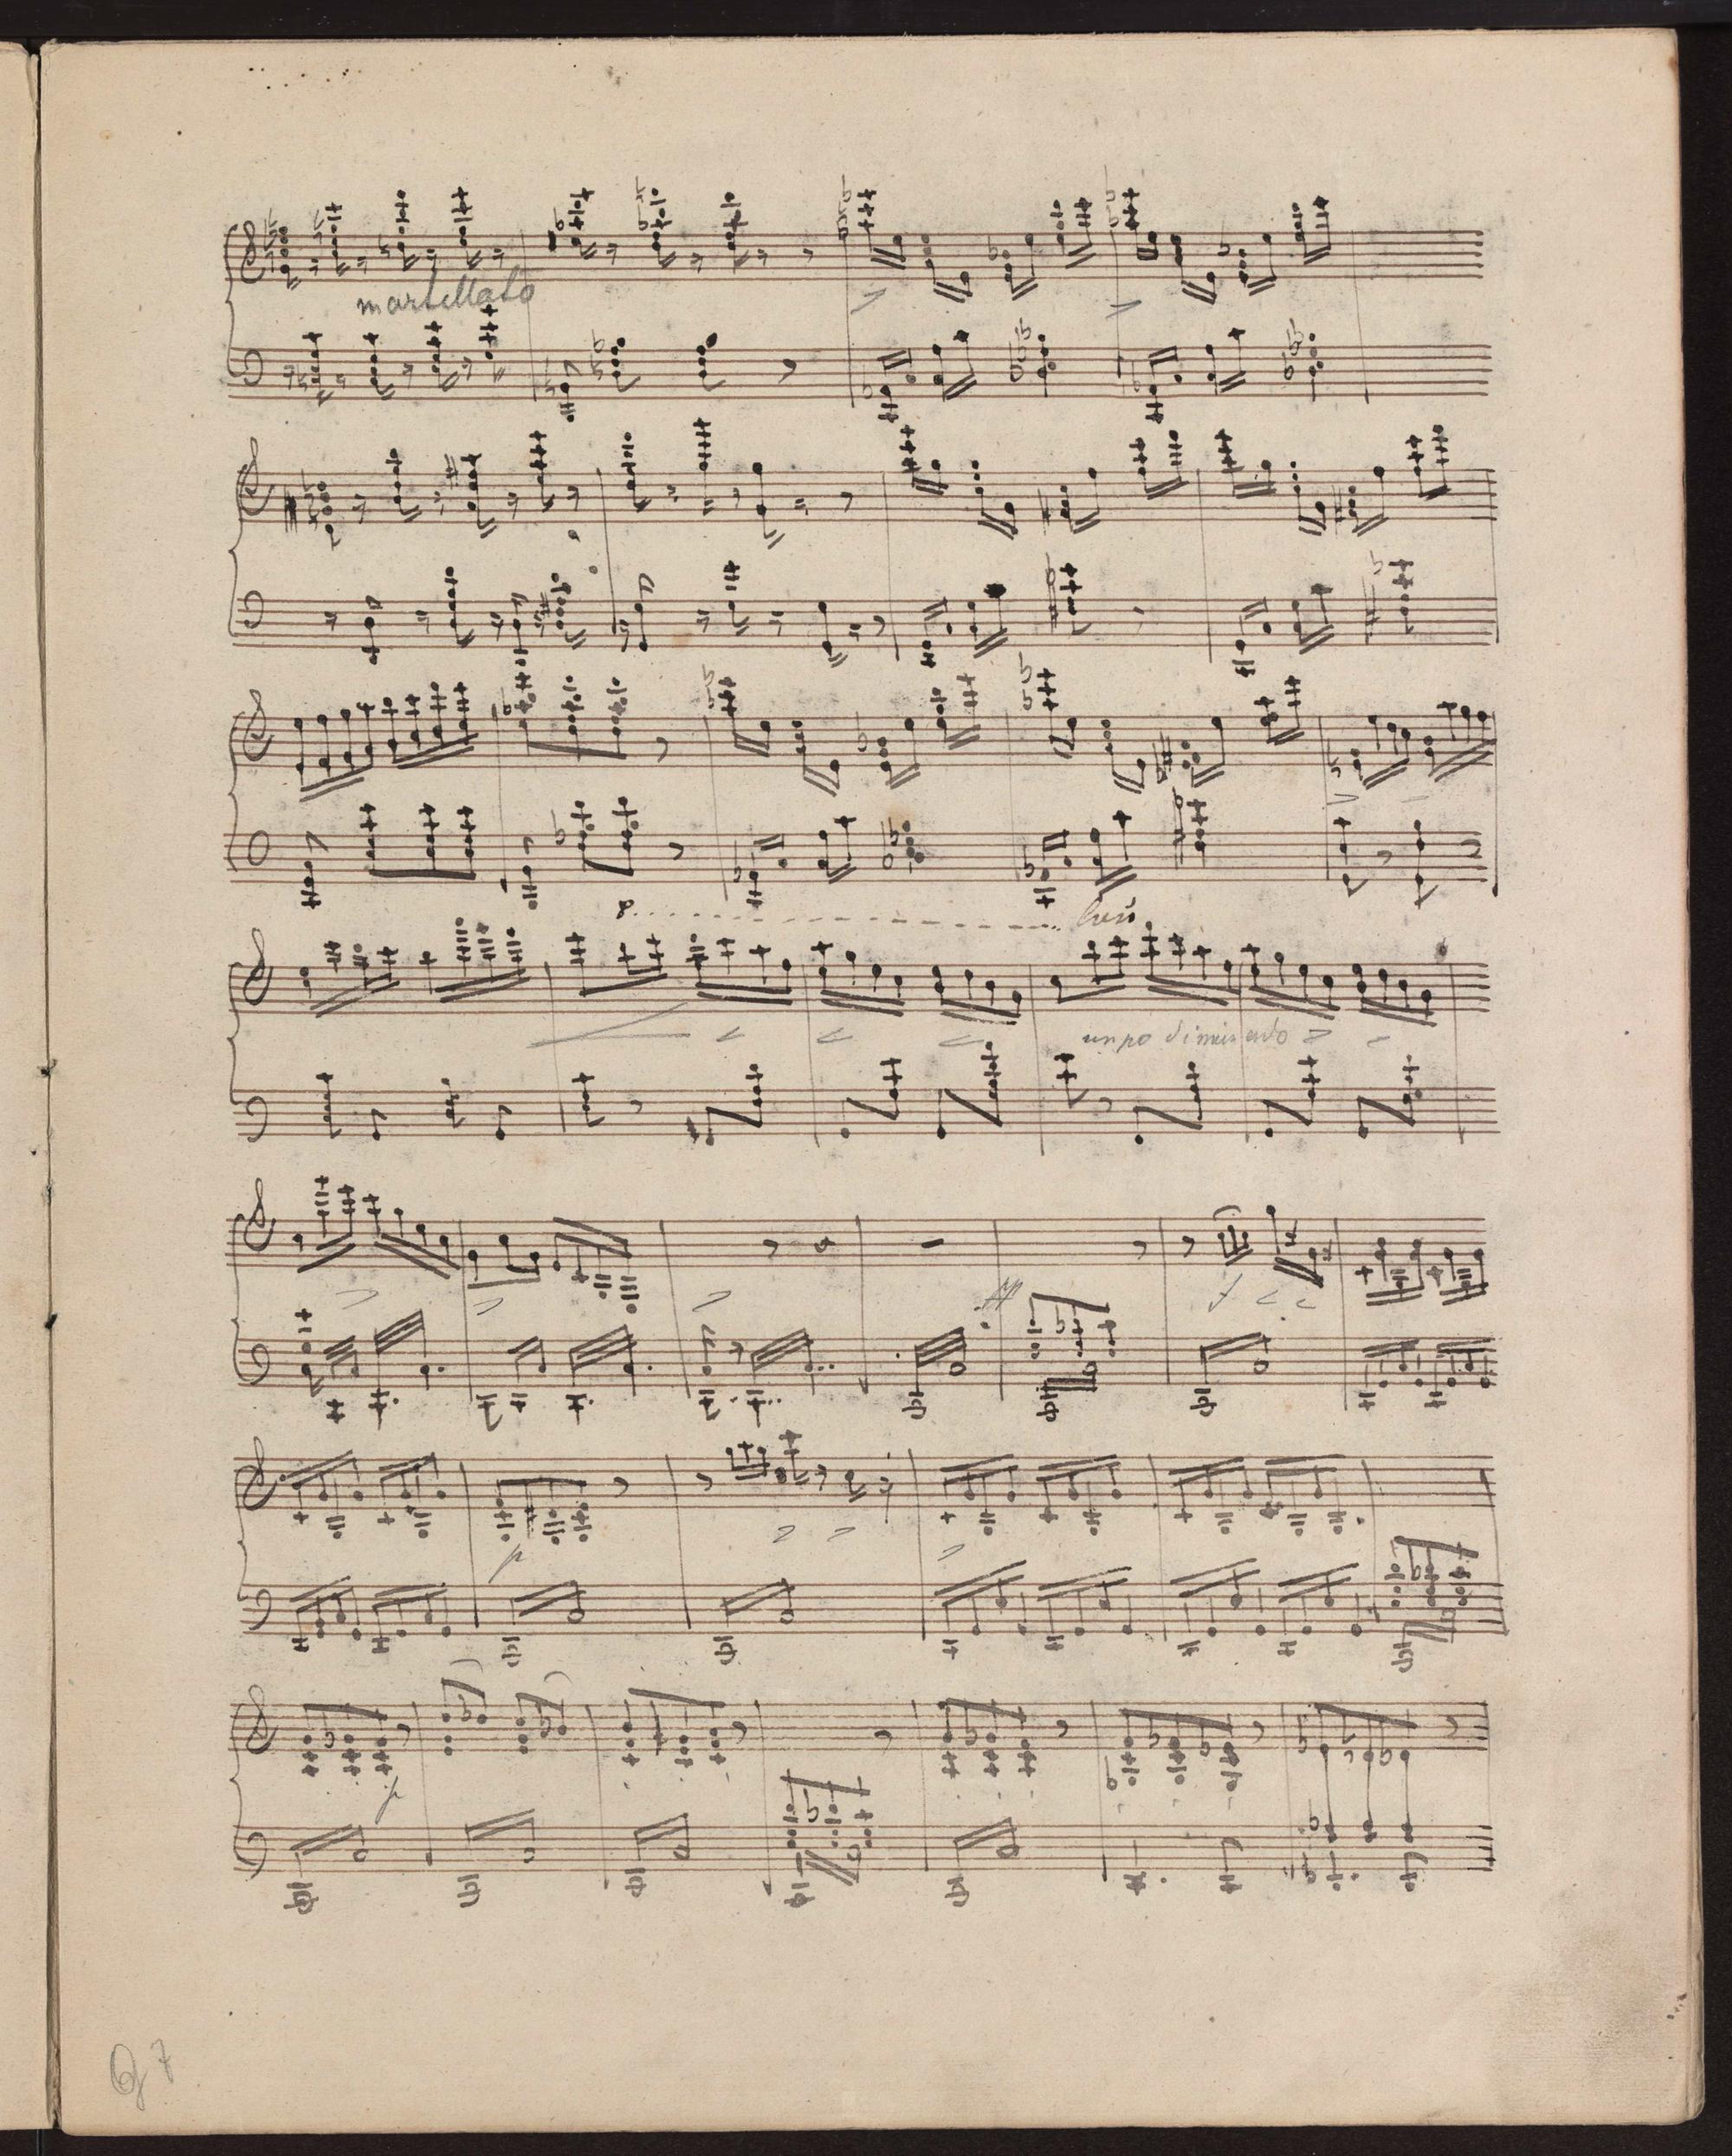 martellato
8 loco
un po diminuendo
ff
f
p
p
Q 7